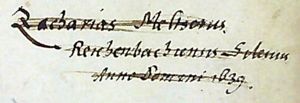 Zacharias Melisorus
Reichenbachiensis Silesius
Anno Domini 1639